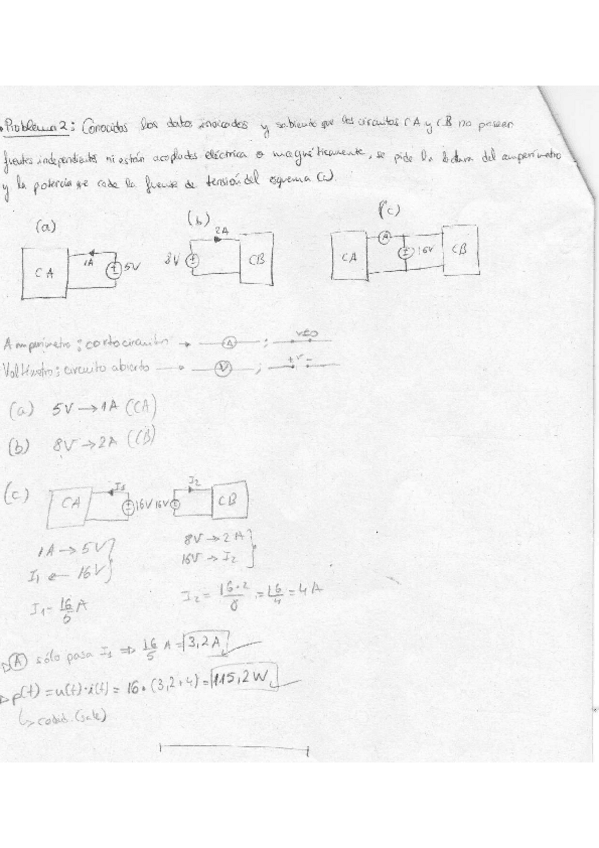 Problema 2: Conocidos los datos indicados y sabiendo que los circuitos CA y CB no poseen
fuentes independientes ni están acoplados eléctrica o magnéticamente, se pide la lectura del amperímetro
y la potencia que cede la fuente de tensión del esquema (c).
(a) (b) (c)
CA 1A 5V 8V 2A CB CA A 16V CB
Amperímetro: cortocircuito → A ; v=0
Voltímetro: circuito abierto → V ; + v -
(a) 5V → 1A (CA)
(b) 8V → 2A (CB)
(c) CA I1 16V 16V I2 CB
1A → 5V
I1 ← 16V
I1 = 16/5 A
8V → 2A
16V → I2
I2 = 16·2/8 = 16/4 = 4A
A sólo pasa I1 ⇒ 16/5 A = 3,2A
p(t) = u(t)·i(t) = 16·(3,2+4) = 115,2W